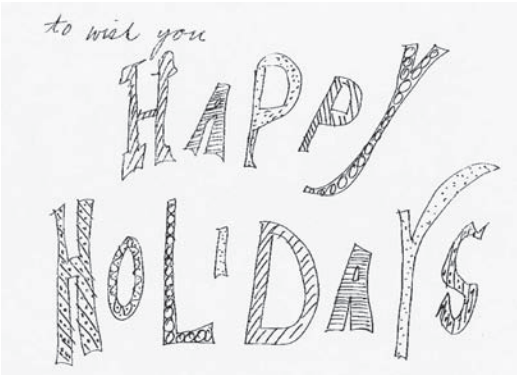 to wish you
HAPPY
HOLIDAYS